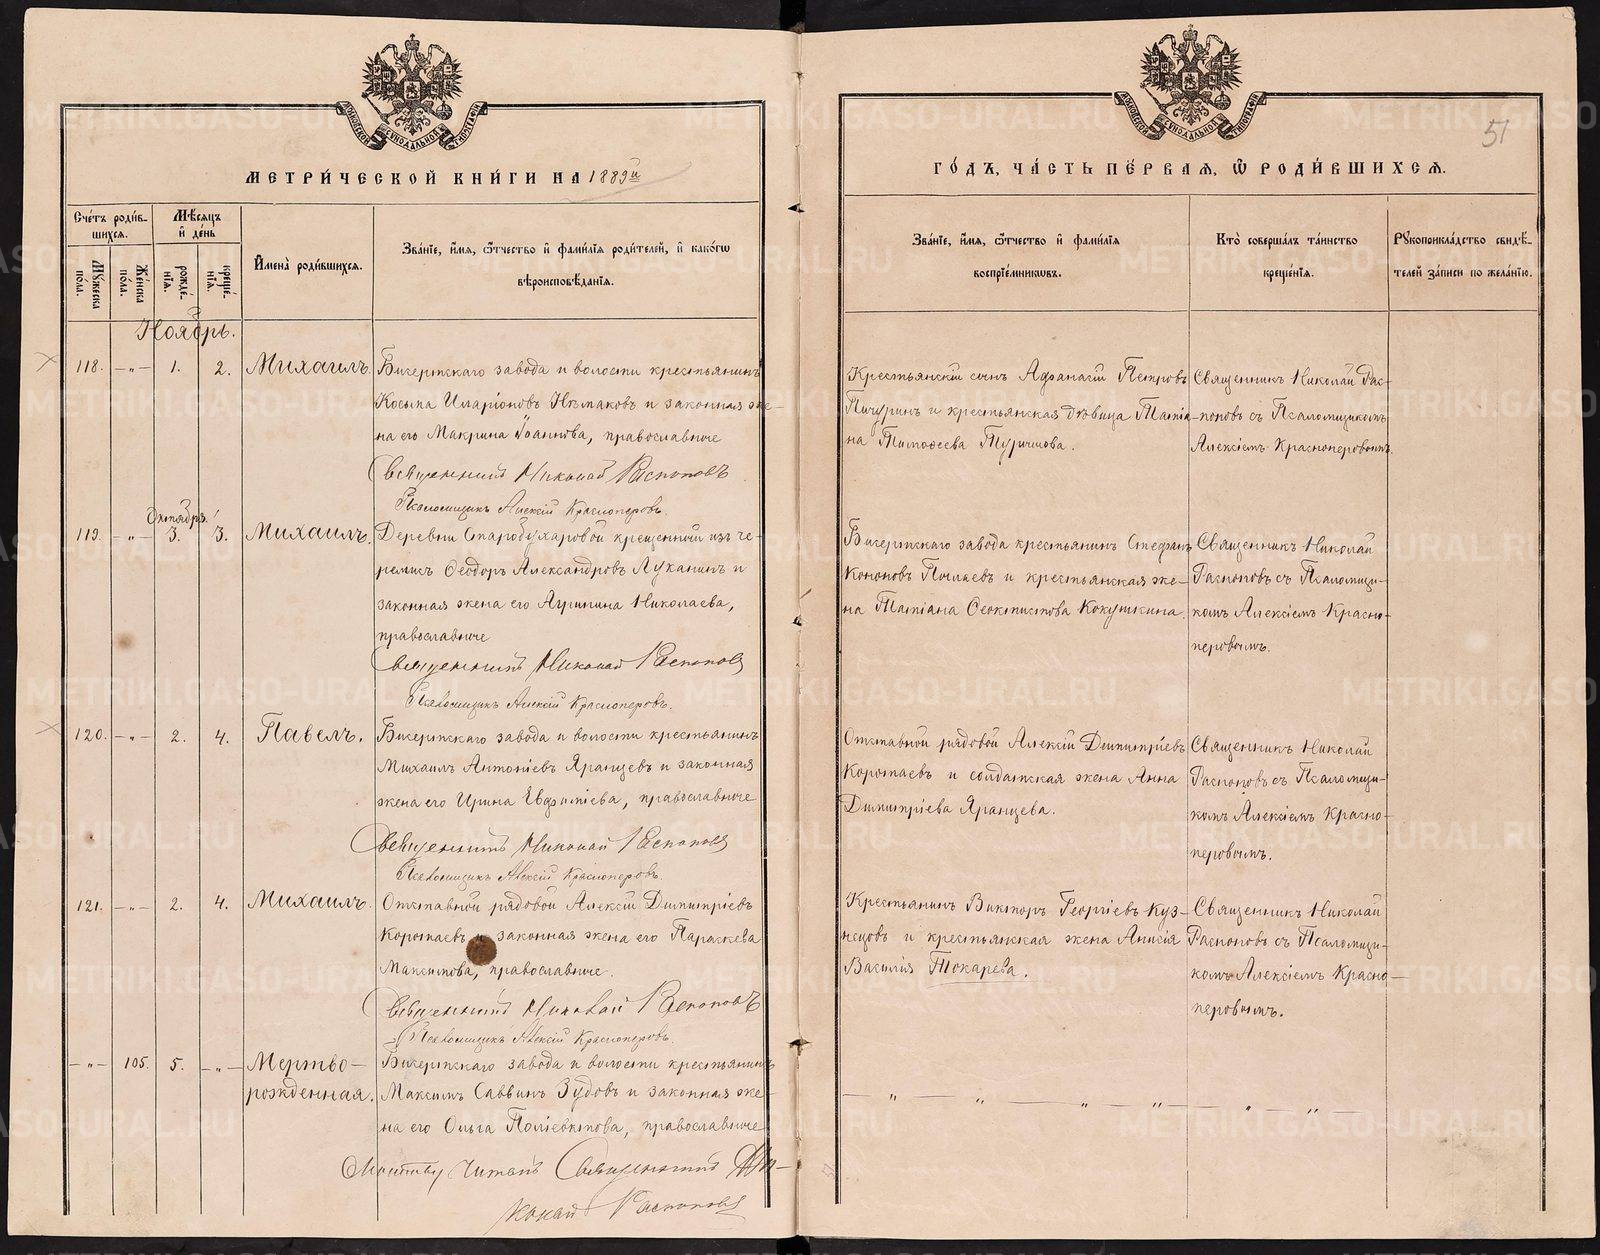 МЕТРИ́ЧЕСКОЙ КНИ́ГИ НА 1889й
Сче́тъ роди́в-
шихся.
Мѣ́сяцъ
и҆ де́нь
И҆мена̀ роди́вшихся.
Зва́нїе, и҆́мя, ѻ҆́тчество и҆ фами́лїя роди́телей, и҆ како́гѡ
вѣроисповѣ́данїя.
Мꙋ́жеска
по́ла.
Же́нска
по́ла.
рожде́-
нїя.
креще́-
нїя.
Ноябрь.
118. -„- 1. 2. Михаилъ.
Бисертскаго завода и волости крестьянинъ
Косьма Иларіоновъ и законная же-
на его Макрина Іоаннова, православные
Священникъ Николай Распоповъ
Псаломщикъ Алексій Красноперовъ.
Октября
119. -„- 3. 3. Михаилъ.
Деревни Старобухаровой крещенный изъ че-
ремисъ Ѳеодоръ Александровъ Луканинъ и
законная жена его Агрипина Николаева,
православные
Священникъ Николай Распоповъ
Псаломщикъ Алексій Красноперовъ.
120. -„- 2. 4. Павелъ.
Бисертскаго завода и волости крестьянинъ
Михаилъ Антоніевъ Яранцевъ и законная
жена его Ирина Евфиміева, православные
Священникъ Николай Распоповъ
Псаломщикъ Алексій Красноперовъ.
121. -„- 2. 4. Михаилъ.
Отставной рядовой Алексій Димитріевъ
Коротаевъ и законная жена его Параскева
Максимова, православные.
Священникъ Николай Распоповъ
Псаломщикъ Алексій Красноперовъ.
-„- 105. 5. -„- Мертво-
рожденная.
Бисертскаго завода и волости крестьянинъ
Максимъ Саввинъ Зудовъ и законная же-
на его Ольга Поліевктова, православные
Молитву читалъ Священникъ Ни-
колай Распоповъ
51
ГО́ДЪ, ЧА́СТЬ ПЕ́РВАЯ, Ѡ҆ РОДИ́ВШИХСЯ.
Зва́нїе, и҆́мя, ѻ҆́тчество и҆ фами́лїя
воспрїе́мникѡвъ.
Кто̀ соверша́лъ та́инство
креще́нїя.
Рꙋкоприкла́дство свидѣ́-
телей за́писи по жела́нїю.
Крестьянскій сынъ Аѳанасій Петровъ
Пичуринъ и крестьянская дѣвица Татіа-
на Тимоѳеева
Священникъ Николай Рас-
поповъ съ Псаломщикомъ
Алексіемъ Красноперовымъ.
Бисертскаго завода крестьянинъ Стефанъ
Кононовъ и крестьянская же-
на Татіана Ѳеоктистова Кокушкина.
Священникъ Николай
Распоповъ съ Псаломщи-
комъ Алексіемъ Красно-
перовымъ.
Отставной рядовой Алексій Димитріевъ
Коротаевъ и солдатская жена Анна
Димитріева Яранцева.
Священникъ Николай
Распоповъ съ Псаломщи-
комъ Алексіемъ Красно-
перовымъ.
Крестьянинъ Викторъ Георгіевъ Куз-
нецовъ и крестьянская жена Анисія
Василія Токарева.
Священникъ Николай
Распоповъ съ Псаломщи-
комъ Алексіемъ Красно-
перовымъ.
— „ — „ — „ — „ — „ — „ —